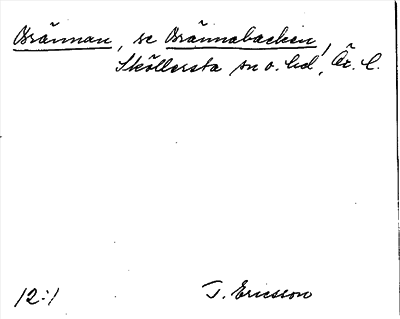 Brännan, se Brännabacken,
Sköllersta sn o. hd, Ör. l.
12:1 T. Ericsson